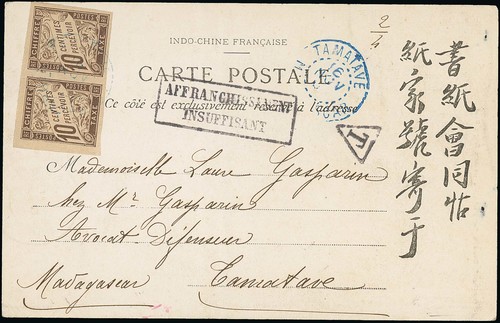 CHIFFRE TAXE
POSTES
10
CENTIMES
À PERCEVOIR
CHIFFRE TAXE
POSTES
10
CENTIMES
À PERCEVOIR
INDO-CHINE FRANÇAISE
CARTE POSTALE
Ce côté est exclusivement réservé à l'adresse
AFFRANCHISSEMENT
INSUFFISANT
TAMATAVE
T
2/4
Mademoiselle Laure Gasparin
chez Mr. Gasparin
Avocat Défenseur
Madagascar Tamatave
書紙會同帖
紙家號寄于